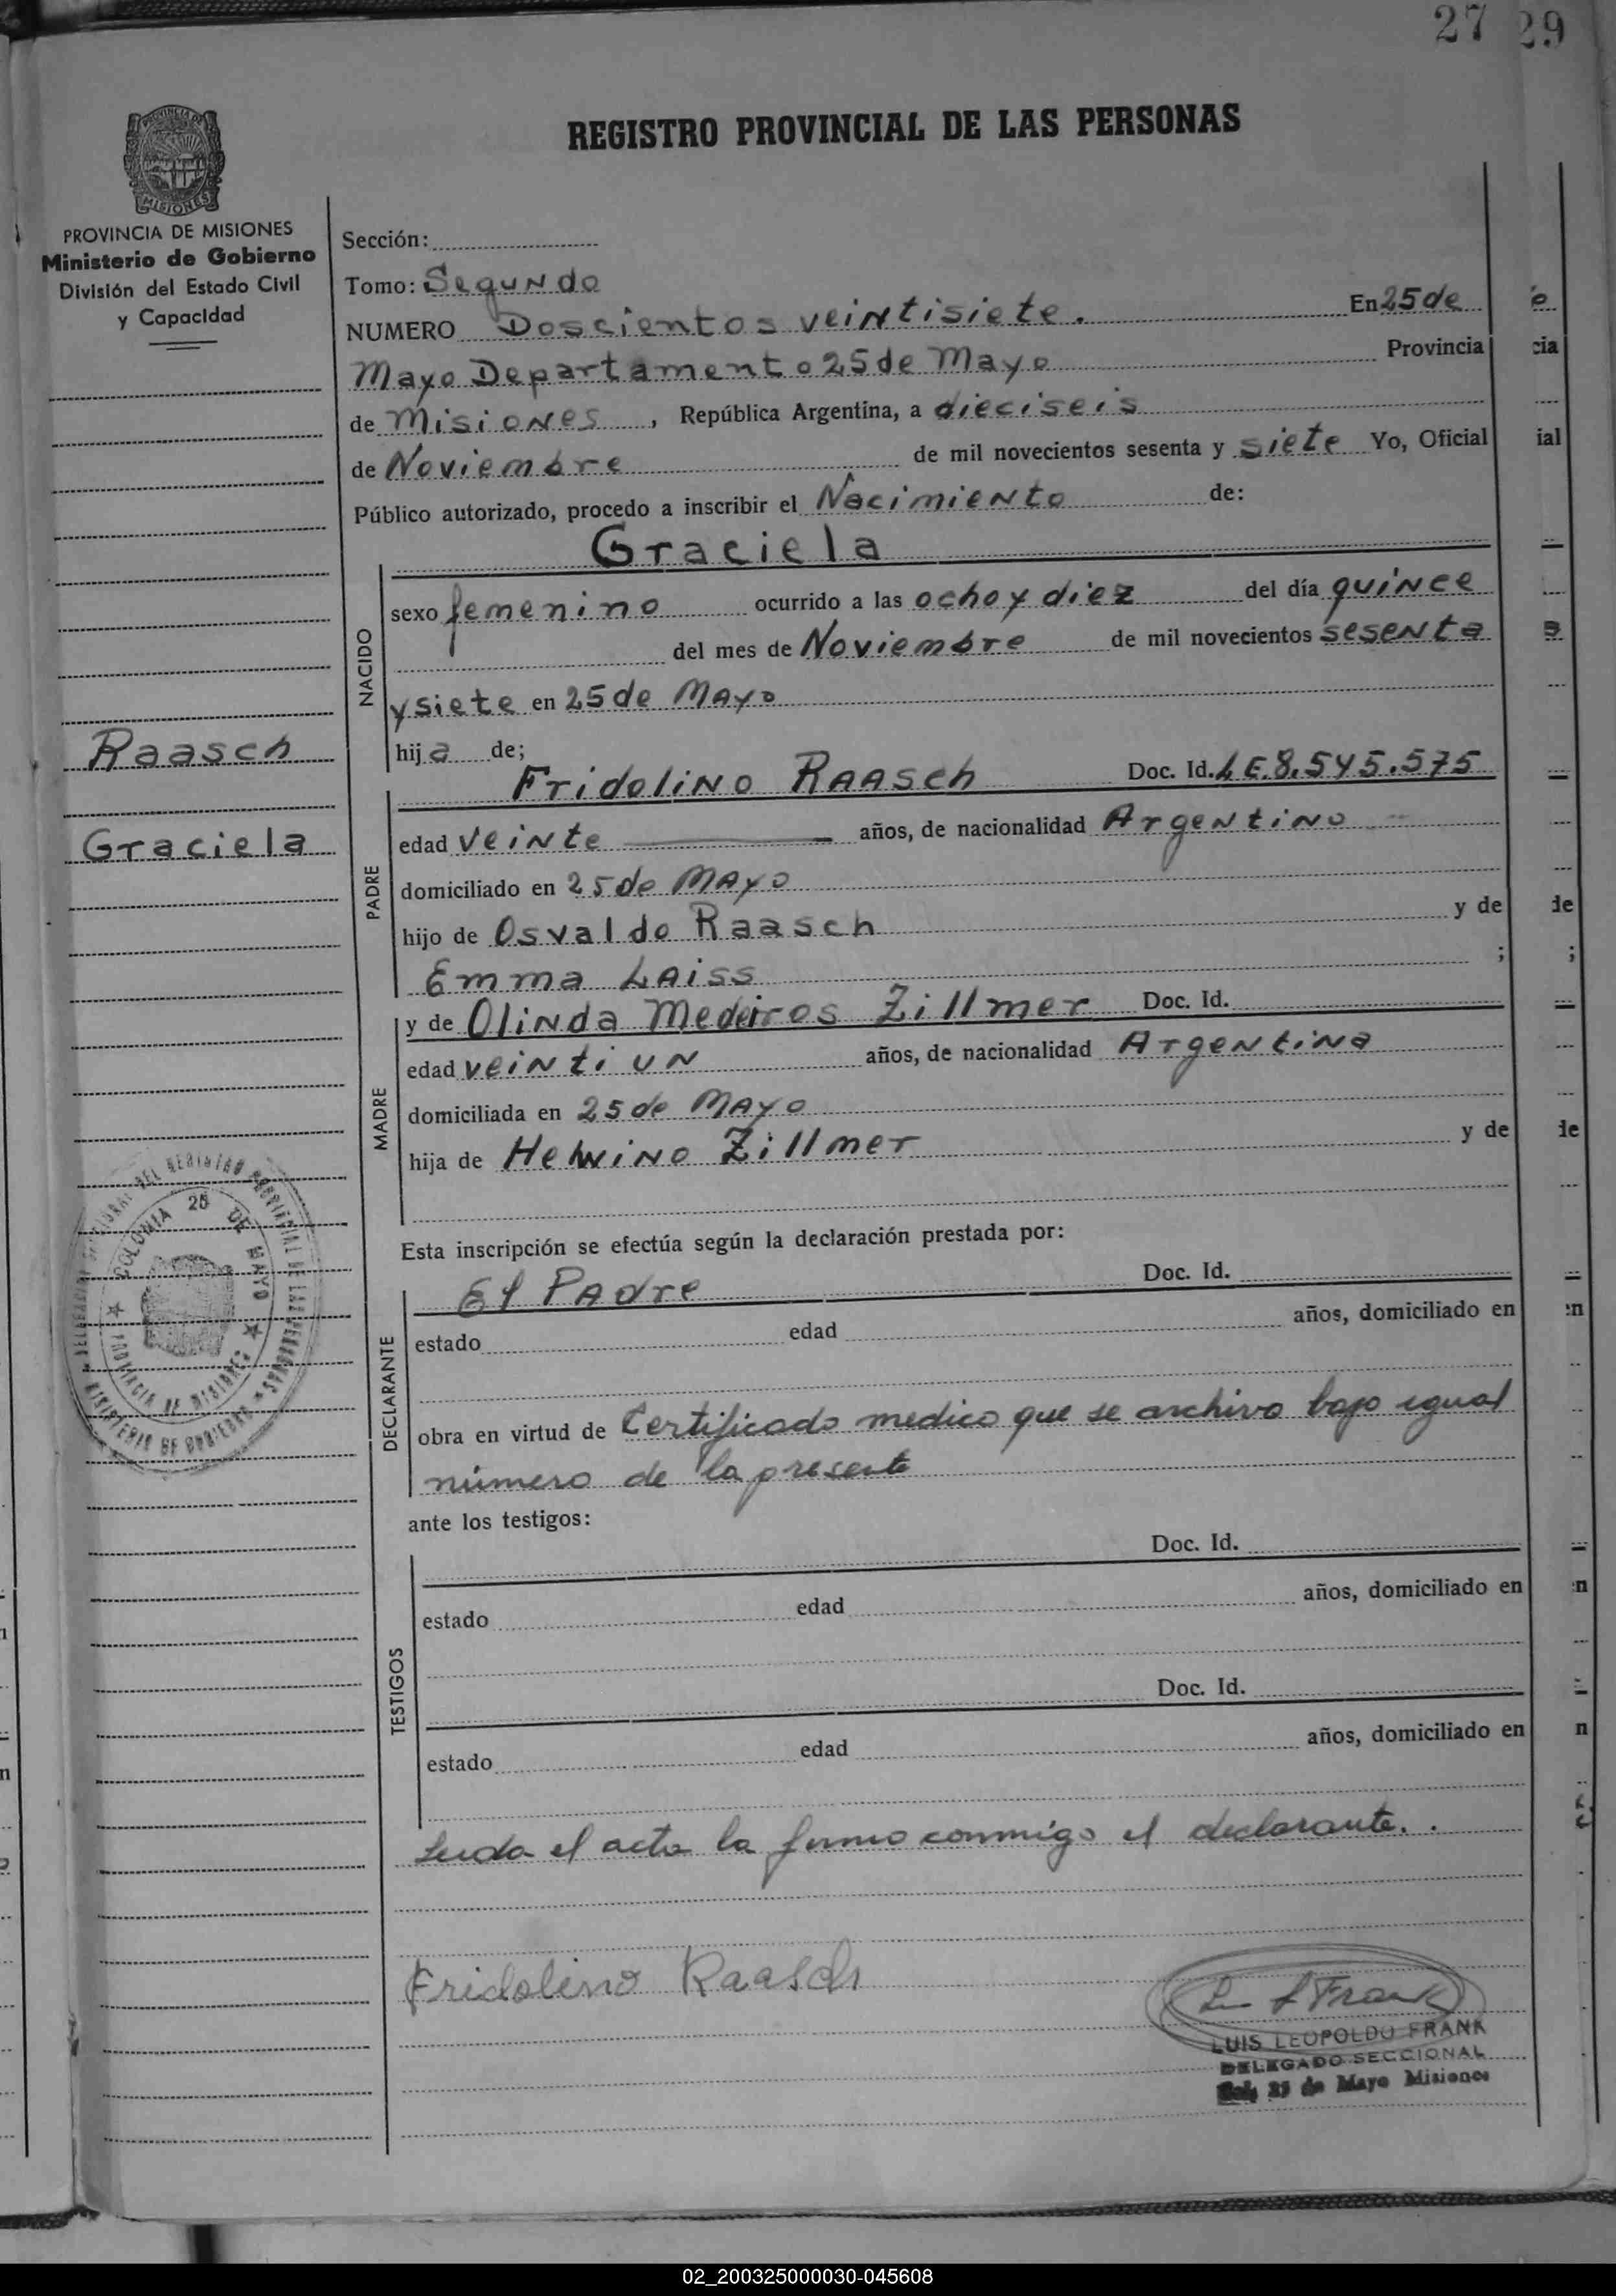 27 29
REGISTRO PROVINCIAL DE LAS PERSONAS
PROVINCIA DE MISIONES
Ministerio de Gobierno
División del Estado Civil
y Capacidad
Sección:
Tomo: Segundo
NUMERO Doscientos veintisiete. En 25 de
Mayo Departamento 25 de Mayo Provincia
de Misiones, República Argentina, a dieciseis
de Noviembre de mil novecientos sesenta y siete Yo, Oficial
Público autorizado, procedo a inscribir el Nacimiento de:
Graciela
NACIDO
sexo femenino ocurrido a las ocho y diez del día quince
del mes de Noviembre de mil novecientos sesenta
y siete en 25 de Mayo
hija de;
Raasch
Graciela
PADRE
Fridolino Raasch Doc. Id. L E.8.545.575
edad veinte años, de nacionalidad Argentino
domiciliado en 25 de Mayo
hijo de Osvaldo Raasch y de
Emma Laiss ;
MADRE
y de Olinda Medeiros Zillmer Doc. Id.
edad veinti un años, de nacionalidad Argentina
domiciliada en 25 de Mayo
hija de Helwino Zillmer y de
COLONIA 25 DE MAYO
PROVINCIA DE MISIONES
MINISTERIO DE GOBIERNO
Esta inscripción se efectúa según la declaración prestada por:
DECLARANTE
El Padre Doc. Id.
estado edad años, domiciliado en
obra en virtud de Certificado medico que se archiva bajo igual
número de la presente
ante los testigos:
TESTIGOS
Doc. Id.
estado edad años, domiciliado en
Doc. Id.
estado edad años, domiciliado en
Leida el acta la firma conmigo el declarante.
Fridolino Raasch
L. L Frank
LUIS LEOPOLDO FRANK
DELEGADO SECCIONAL
25 de Mayo Misiones
02_200325000030-045608